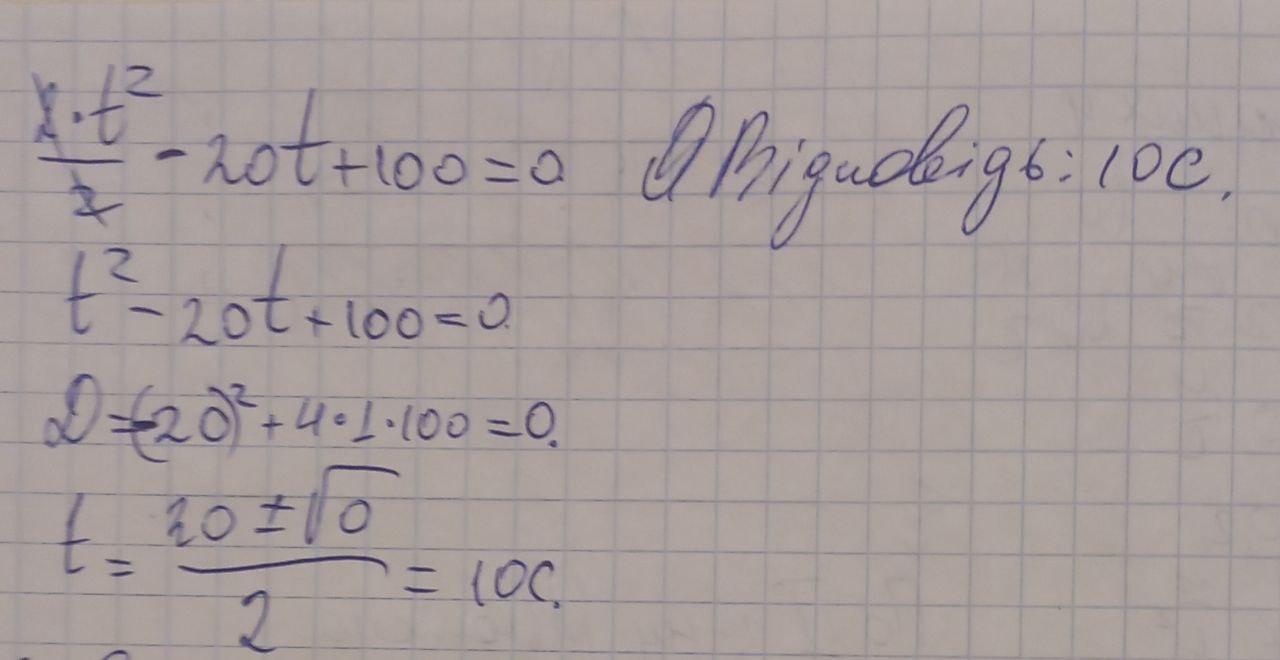 2·t²/2 - 20t + 100 = 0 Відповідь: 10с.
t² - 20t + 100 = 0.
D = (-20)² + 4·1·100 = 0.
t = (20 ± √0)/2 = 10с.